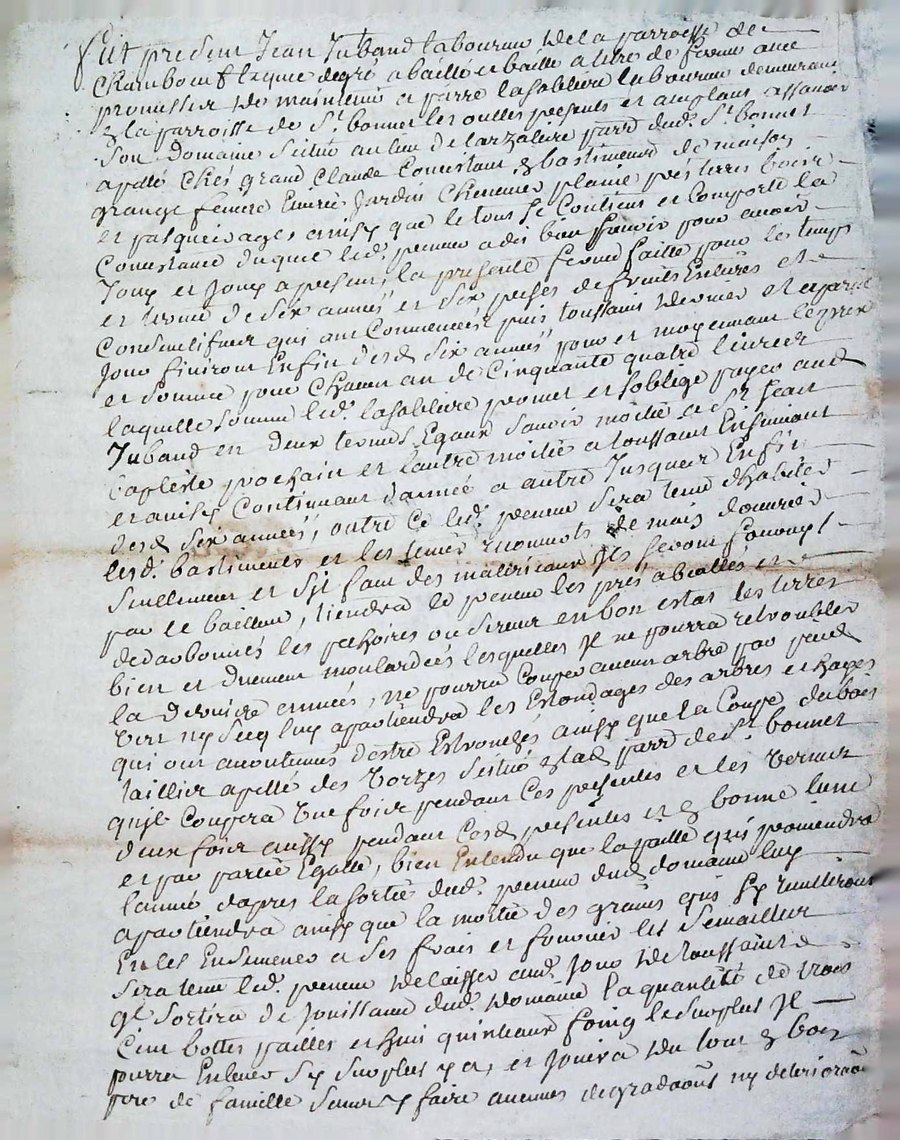 fut present Jean Juband laboureur de la parroisse de
Chambœuf lequel de gré a baillé et baille a titre de ferme avec
promesse de maintenir a pierre lasabliere laboureur demeurant
en la parroisse de St bonnet les oulles present et acceptant assavoir
son domaine scitué au lieu de larzaliere parr. dud. St bonnet
apellé Chés grand Claude Consistant en bastiments de maison
grange Jardin Chenevier plaine prés terres bois
et pasqueirages ainsy que le tout se Contient et Comporte la
Consistance duquel led. preneur a dit bien scavoir pour avoir
Jouy et Jouy a present, la presente ferme faitte pour les temps
et terme de six années et six prises de fruits Entieres et
Consecutives qui ont Commencées puis toussaint dernier et a pareil
Jour finiront Enfin desd. six années pour et moyennant le prix
et somme pour Chacun an de Cinquante quatre livres
laquelle somme led. lasabliere promet et soblige payer aud.
Juband en deux termes Egaux savoir moitié a St Jean
baptiste prochain et lautre moitié a toussaint Ensuivant
et ainsy Continuant dannée a autre Jusques Enfin
desd. six années, outre Ce led. preneur sera tenu dhabiter
lesd. bastiments et les tenir de main douvrier
seullement et sil faut des materiaux Ils seront fournys
par le bailleur, tiendra le preneur les prés abeallés et
detaubonnés les pechoires ou serves en bon estat les terres
bien et duement moutardées lesquelles Il ne pourra retroubler
la derniere année, ne pourra Couper aucun arbre par pied
vert ny secq luy apartiendra les Emondages des arbres et hayes
qui ont accoutumés destre Estronchés ainsy que la Coupe du bois
taillier apellé des Vorzes scitué en lad. parr. de St bonnet
quil Coupera une fois pendant Ces presentes et les vernes
deux fois aussy pendant Cesd. presentes et en bonne lune
et par partie Egalle, bien Entendu que la paille qui proviendra
lannée dapres la sortie dud. preneur dud. domaine luy
apartiendra ainsy que la moitié des grains qui sy recuilliront
En les Ensemencer a ses frais et fournir les semailles
sera tenu led. preneur de laisser aud. Jour de toussaint
quil sortira de Jouissance dud. domaine la quantité de trois
Cent bottes pailles et huit quintaux foing le surplus Il
pourra Enlever sy surplus y a, et Jouira du tout en bon
pere de famille sans y faire aucunes degradaons ny deterioraon